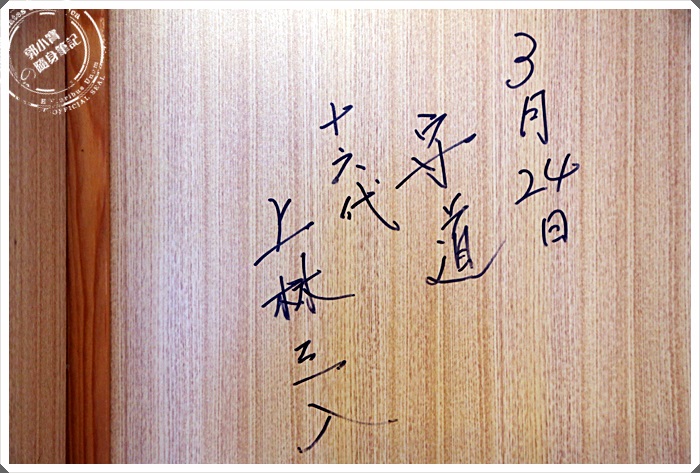 3月24日
守道
十六代
上林三入
郭小寶
の隨身筆記
E Pluribus Unum
OFFICIAL SEAL